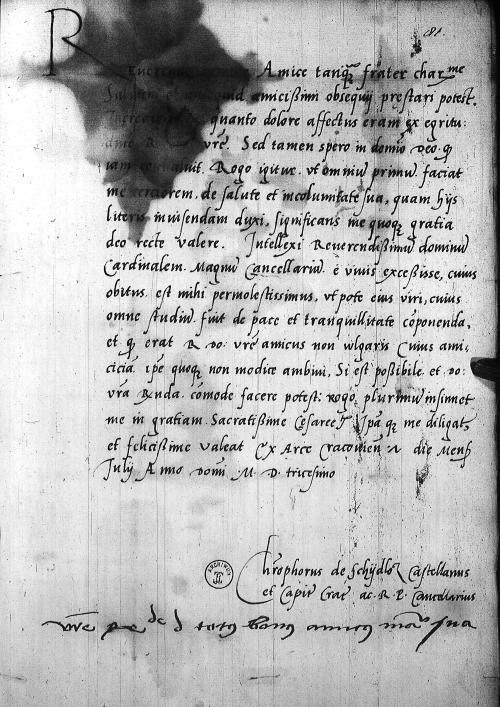 81.
R
Amice tanq3 frater char.me
amicissimi obsequij prestari potest.
quanto dolore affectus eram ex egritu:
vre. Sed tamen spero in domio deo q3
Rogo igitur. vt omniu primu faciat
me de salute et incolumitate sua, quam hijs
literis inuisendam duxi, significans me quoq3 gratia
deo recte valere. Intellexi Reuerendissimu dominu
Cardinalem. Magnu Cancellariu. e viuis excessisse, cuius
obitus. est mihi permolestissimus, vt pote eius viri, cuius
omne studiu. fuit de pace et tranquillitate coponenda,
et q3 erat R. do: vre amicus non vlgaris Cuius ami,
cicia. ipe quoq3 non modice ambiui, Si est possibile. et do:
vra Rnda. comode facere potest: rogo, plurimu insinuet
me in gratiam. Sacratissime Cesaree Ipa q3 me diligat,
et felicissime valeat Ex Arce Cracouien die Mens
Julij Anno domi. M. D. tricesimo
Chrophorus de Schÿdlo Castellanus
et Capit Crac ac. R. P. Cancellarius
vre totus bonus amicus sua